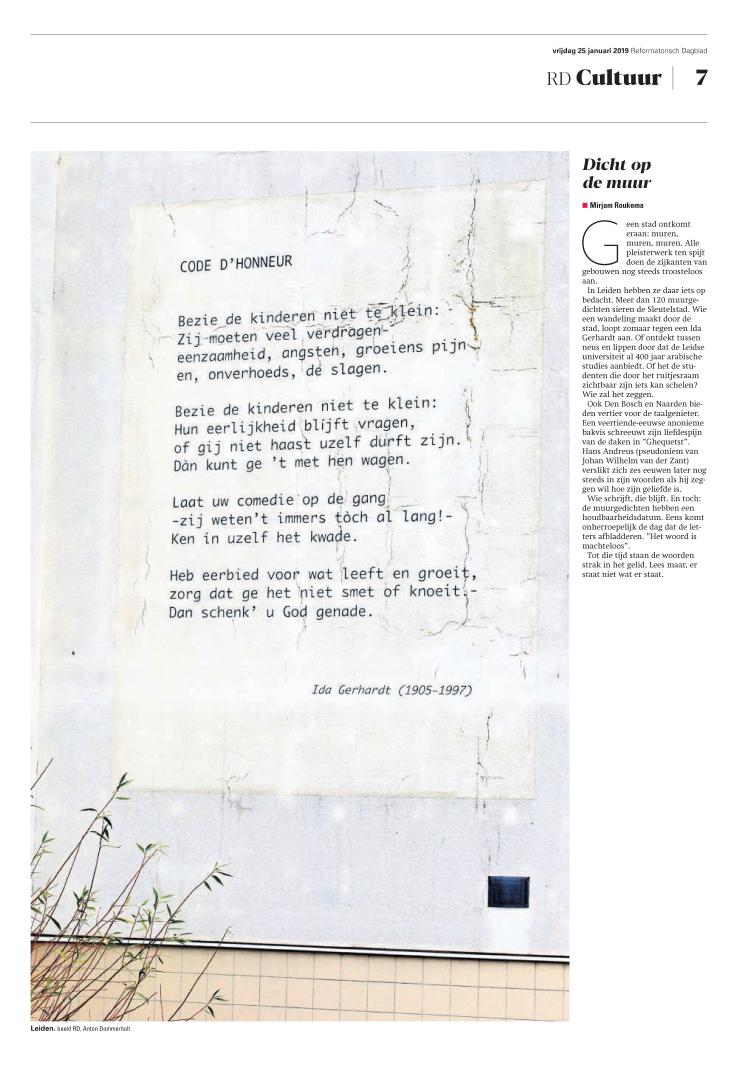 vrijdag 25 januari 2019 Reformatorisch Dagblad
RD Cultuur 7
CODE D'HONNEUR
Bezie de kinderen niet te klein:
Zij moeten veel verdragen-
eenzaamheid, angsten, groeiens pijn
en, onverhoeds, de slagen.
Bezie de kinderen niet te klein:
Hun eerlijkheid blijft vragen,
of gij niet haast uzelf durft zijn.
Dàn kunt ge 't met hen wagen.
Laat uw comedie op de gang
-zij weten't immers tòch al lang!-
Ken in uzelf het kwade.
Heb eerbied voor wat leeft en groeit,
zorg dat ge het niet smet of knoeit.-
Dan schenk' u God genade.
Ida Gerhardt (1905-1997)
Leiden. beeld RD, Anton Dommerholt
Dicht op
de muur
Mirjam Roukema
Geen stad ontkomt
eraan: muren,
muren, muren. Alle
pleisterwerk ten spijt
doen de zijkanten van
gebouwen nog steeds troosteloos
aan.
In Leiden hebben ze daar iets op
bedacht. Meer dan 120 muurge-
dichten sieren de Sleutelstad. Wie
een wandeling maakt door de
stad, loopt zomaar tegen een Ida
Gerhardt aan. Of ontdekt tussen
neus en lippen door dat de Leidse
universiteit al 400 jaar arabische
studies aanbiedt. Of het de stu-
denten die door het ruitjesraam
zichtbaar zijn iets kan schelen?
Wie zal het zeggen.
Ook Den Bosch en Naarden bie-
den vertier voor de taalgenieter.
Een veertiende-eeuwse anonieme
bakvis schreeuwt zijn liefdespijn
van de daken in "Ghequetst".
Hans Andreus (pseudoniem van
Johan Wilhelm van der Zant)
verslikt zich zes eeuwen later nog
steeds in zijn woorden als hij zeg-
gen wil hoe zijn geliefde is.
Wie schrijft, die blijft. En toch:
de muurgedichten hebben een
houdbaarheidsdatum. Eens komt
onherroepelijk de dag dat de let-
ters afbladderen. "Het woord is
machteloos".
Tot die tijd staan de woorden
strak in het gelid. Lees maar, er
staat niet wat er staat.